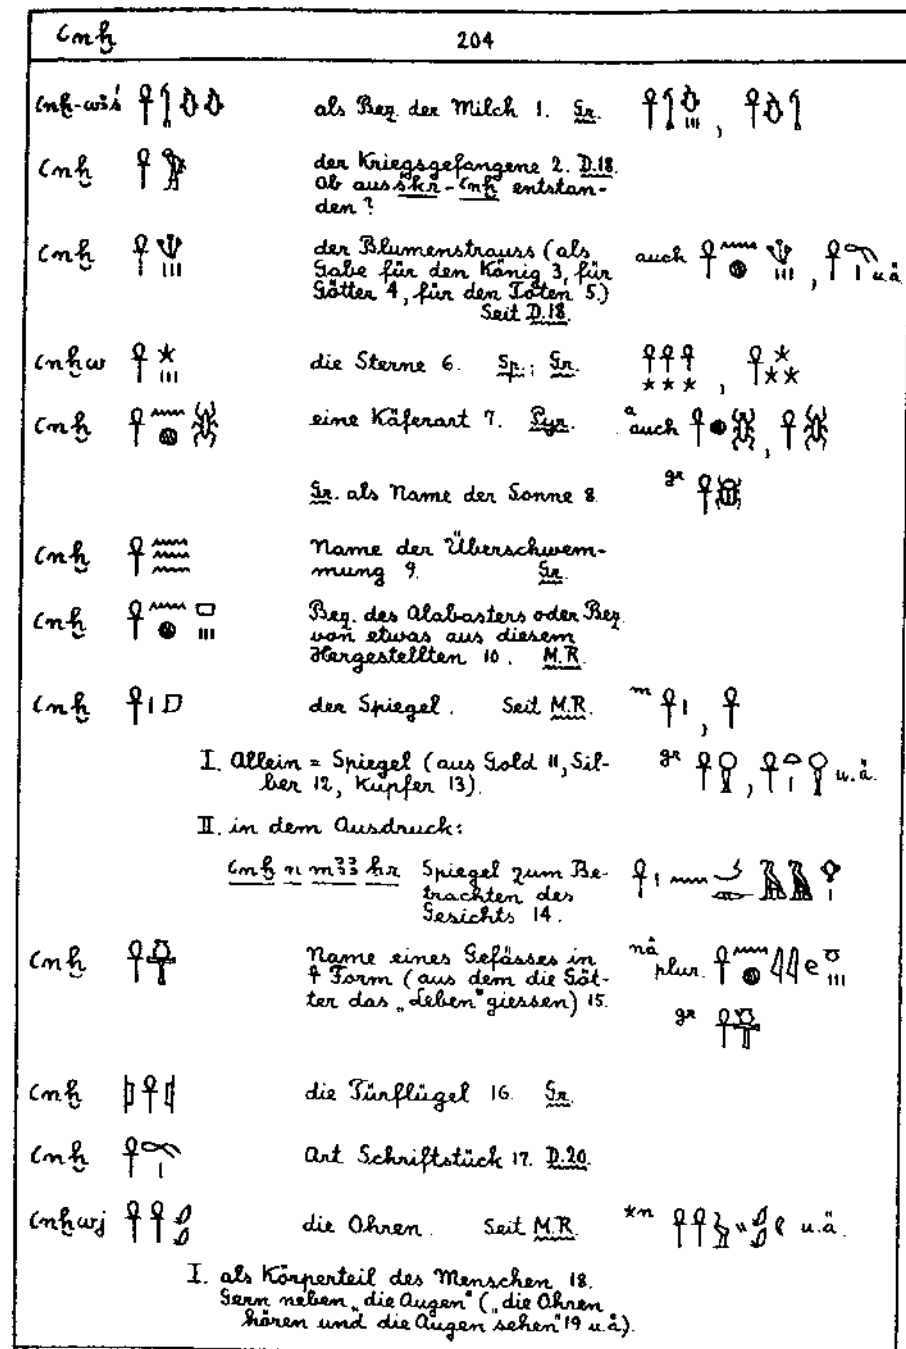 ꜥnḫ 204
ꜥnḫ-wꜣś 𓋹𓌀 als Bez. der Milch 1. Gr. 𓋹𓌀 , 𓋹
ꜥnḫ 𓋹 der Kriegsgefangene 2. D.18.
Ob aus śḳr-ꜥnḫ entstan-
den?
ꜥnḫ 𓋹 𓏥 der Blumenstrauss (als auch 𓋹𓈖𓐍 𓏥 , 𓋹 u.ä.
Gabe für den König 3, für
Götter 4, für den Toten 5.)
Seit D.18.
ꜥnḫw 𓋹𓇼𓏥 die Sterne 6. Sp.; Gr. 𓋹𓋹𓋹𓇼𓇼𓇼 , 𓋹𓇼𓇼𓇼
ꜥnḫ 𓋹𓈖𓐍𓆣 eine Käferart 7. Pyr. a auch 𓋹𓐍𓆣 , 𓋹𓆣
Gr. als Name der Sonne 8. gr 𓋹𓆣
ꜥnḫ 𓋹𓈗 Name der Überschwem-
mung 9. Gr.
ꜥnḫ 𓋹𓈖𓐍 𓏥 Bez. des Alabasters oder Bez.
von etwas aus diesem
Hergestellten 10. M.R.
ꜥnḫ 𓋹𓏤 der Spiegel. Seit M.R. m 𓋹𓏤 , 𓋹
I. Allein = Spiegel (aus Gold 11, Sil- gr 𓋹 , 𓋹𓏏𓏤 u.ä.
ber 12, Kupfer 13).
II. in dem Ausdruck:
ꜥnḫ n mꜣꜣ ḥr Spiegel zum Be- 𓋹𓏤𓈖𓌳𓁹𓄿𓄿𓁷𓏤
trachten des
Gesichts 14.
ꜥnḫ 𓋹 Name eines Gefässes in nä plur. 𓋹𓈖𓐍𓇌𓏲 𓏥
𓋹 Form (aus dem die Göt-
ter das „Leben“ giessen) 15.
gr 𓋹
ꜥnḫ 𓋹 die Türflügel 16. Gr.
ꜥnḫ 𓋹𓍼𓏤 Art Schriftstück 17. D.20.
ꜥnḫwj 𓋹𓋹𓂈𓂈 die Ohren. Seit M.R. *n 𓋹𓋹𓅱𓏭 u.ä.
I. als Körperteil des Menschen 18.
Gern neben „die Augen“ („die Ohren
hören und die Augen sehen“ 19 u.ä).